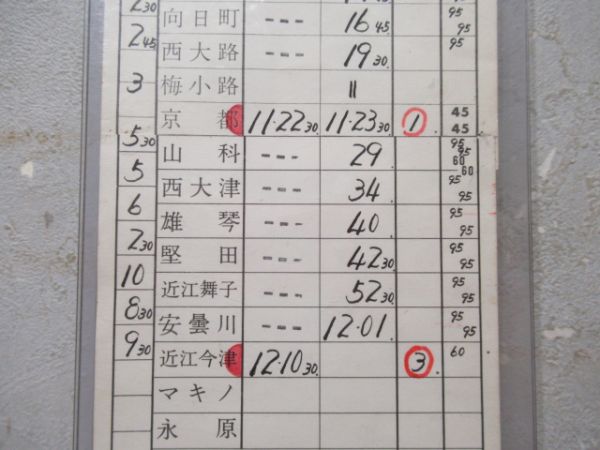 2 30
向日町 --- 16 45. 95 95
2 45 西大路 --- 19 30. 95
3 梅小路 〃
京都 11.22 30. 11.23 30. 1 45 45
5 30 山科 --- 29 95 95 60 60
5 西大津 --- 34 95 95
6 雄琴 --- 40 95 95
2 30 堅田 --- 42 30. 95 95
10 近江舞子 --- 52 30. 95 95
8 30 安曇川 --- 12.01. 95 95
9 30 近江今津 12.10 30. 3 60
マキノ
永原